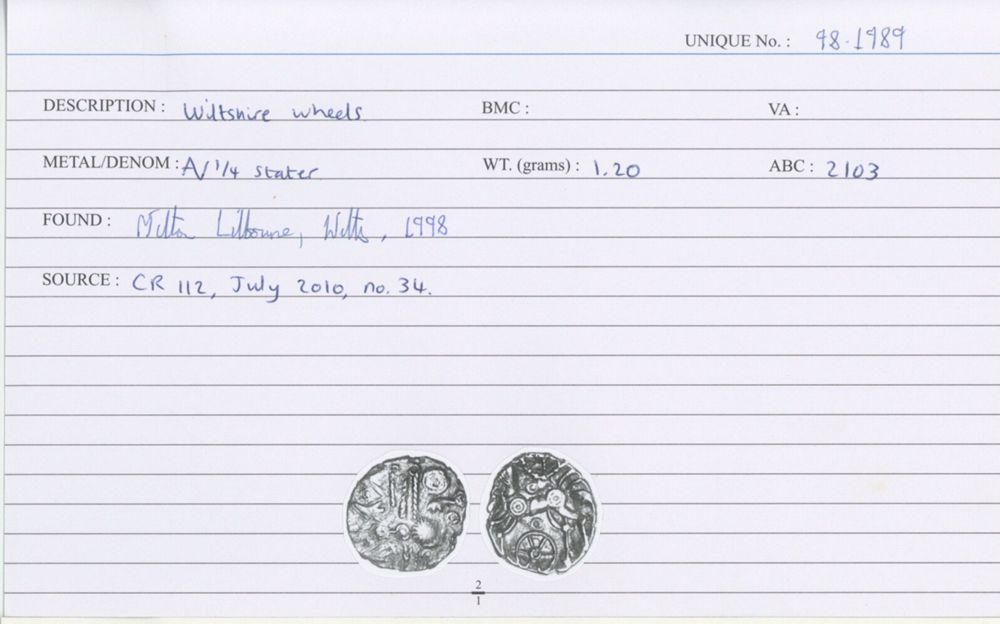 UNIQUE No. : 98.1989
DESCRIPTION : Wiltshire wheels BMC : VA :
METAL/DENOM : A/ 1/4 stater WT. (grams) : 1.20 ABC : 2103
FOUND : Milton Lilbourne, Wilts, 1998
SOURCE : CR 112, July 2010, no. 34.
2
1